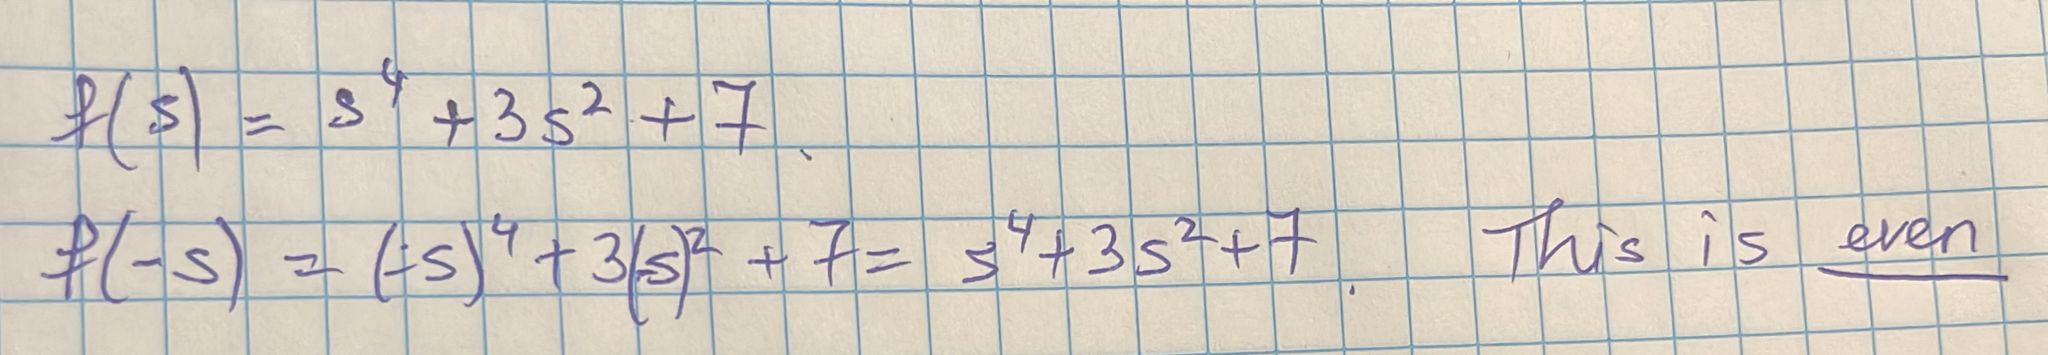 f(s) = s⁴ + 3s² + 7.
f(-s) = (-s)⁴ + 3(-s)² + 7 = s⁴ + 3s² + 7. This is even